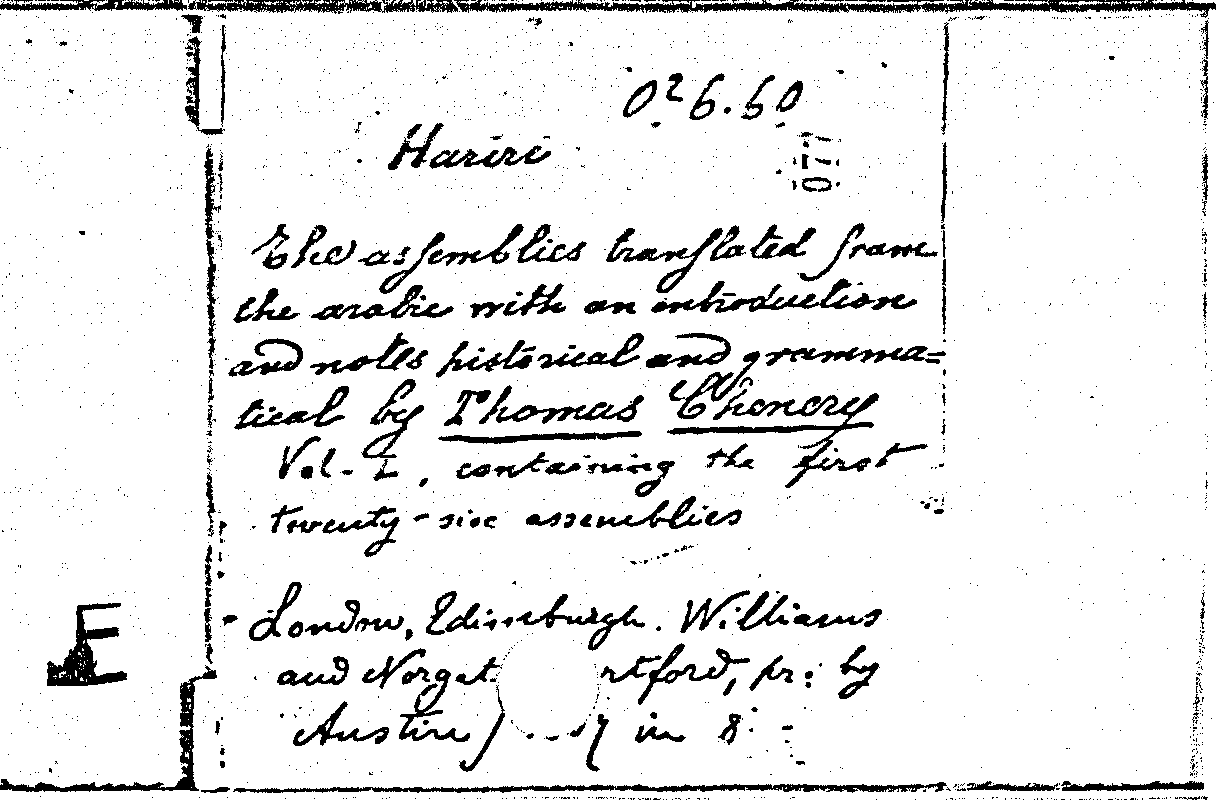 O² 6.60
077
Hariri
The assemblies translated from
the arabic with an introduction
and notes historical and gramma=
tical by Thomas Chenery
Vol. I, containing the first
twenty-six assemblies
London, Edinburgh. Williams
and Norgat rtford, pr: by
Austin) 7 in 8.
E